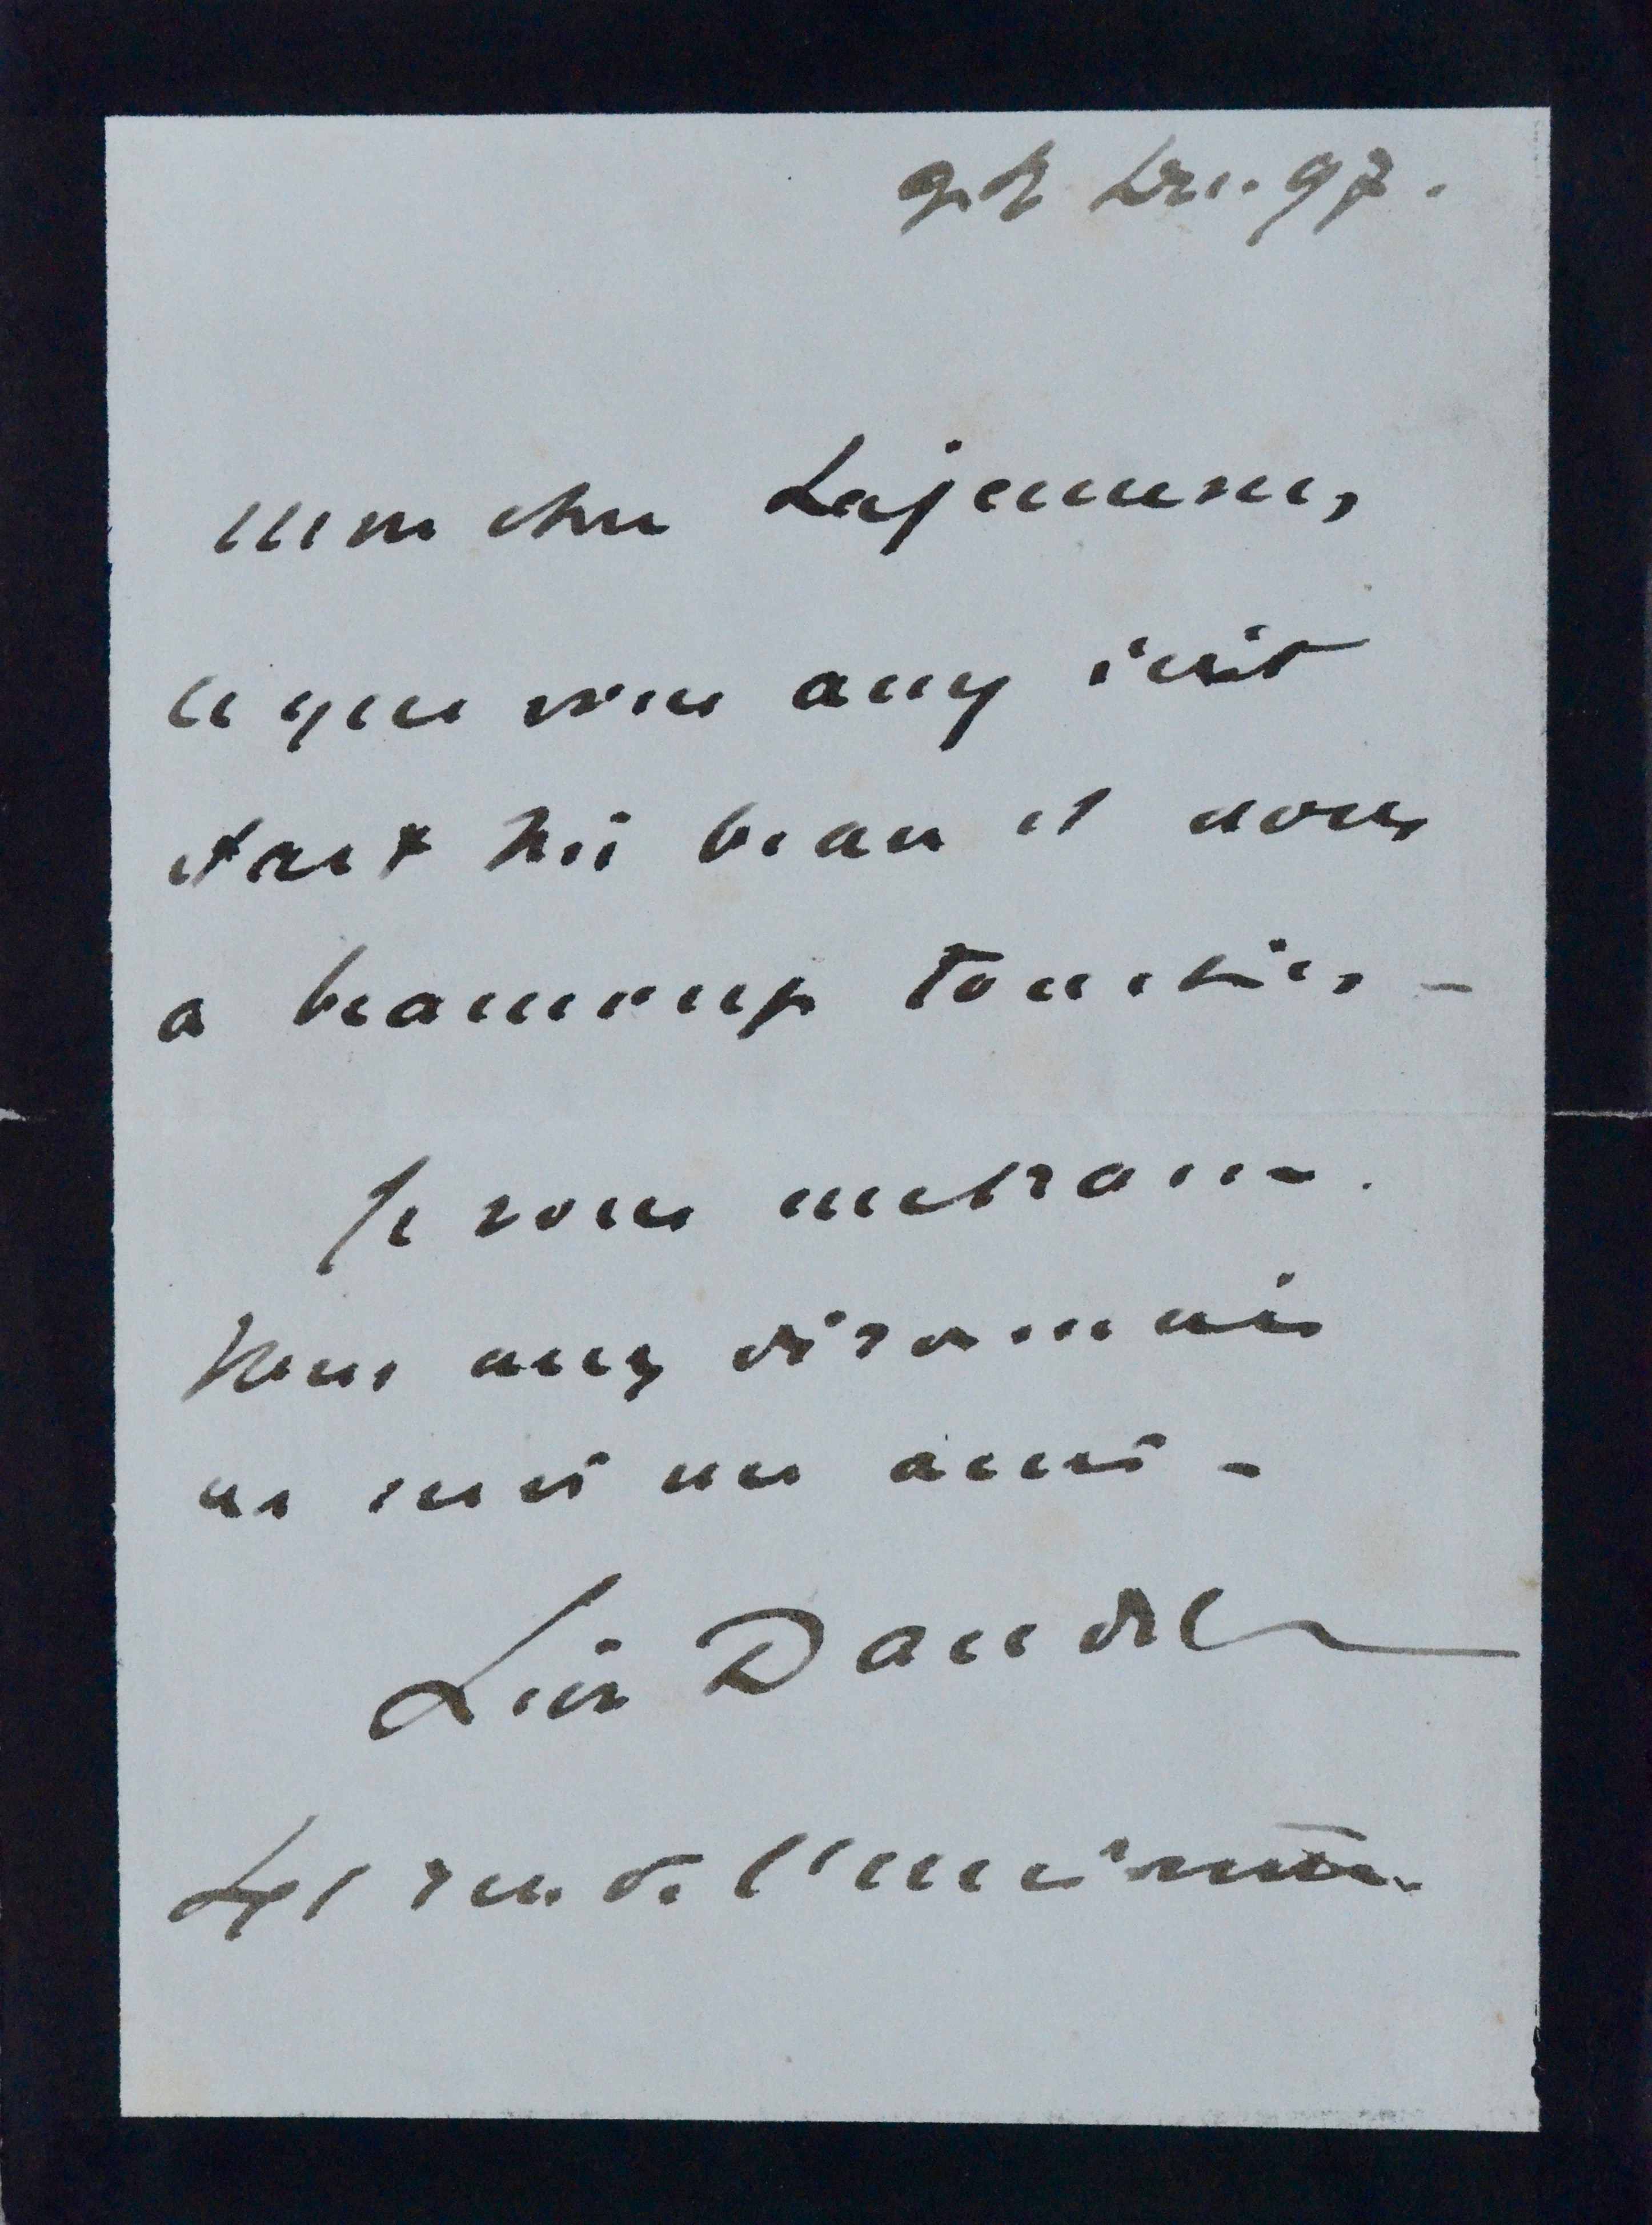 Déc. 97.
Mon cher Lajeunesse,
ce que vous avez écrit
était très beau et nous
a beaucoup touchés -
Je vous embrasse.
Vous avez désormais
en moi un ami -
Léon Daudet
41 rue de l'université.